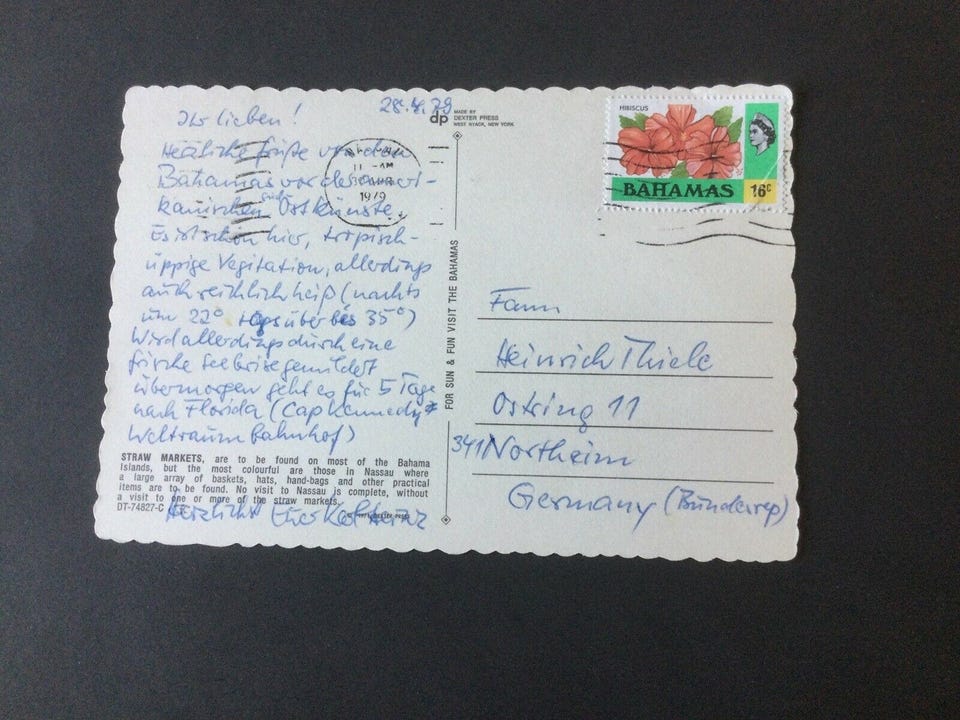 28.4.79
Ihr lieben!
Herzliche Grüße von den
Bahamas vor der ameri-
kanischen Ostküste
Es ist schön hier, tropisch-
üppige Vegitation, allerdings
auch reichlich heiß (nachts
um 22° tagsüber bis 35°)
Wird allerdings durch eine
frische Seebrise gemildert
übermorgen geht es für 5 Tage
nach Florida (Cap Kennedy
Weltraum Bahnhof)
Herzlichst Euer Karl Heinz
STRAW MARKETS, are to be found on most of the Bahama
Islands, but the most colourful are those in Nassau where
a large array of baskets, hats, hand-bags and other practical
items are to be found. No visit to Nassau is complete, without
a visit to one or more of the straw markets.
DT-74827-C
dp
MADE BY
DEXTER PRESS
WEST NYACK, NEW YORK
FOR SUN & FUN VISIT THE BAHAMAS
11 - AM
1979
HIBISCUS
BAHAMAS 16c
Fam
Heinrich Thiele
Ostring 11
341 Northeim
Germany (Bundesrep)